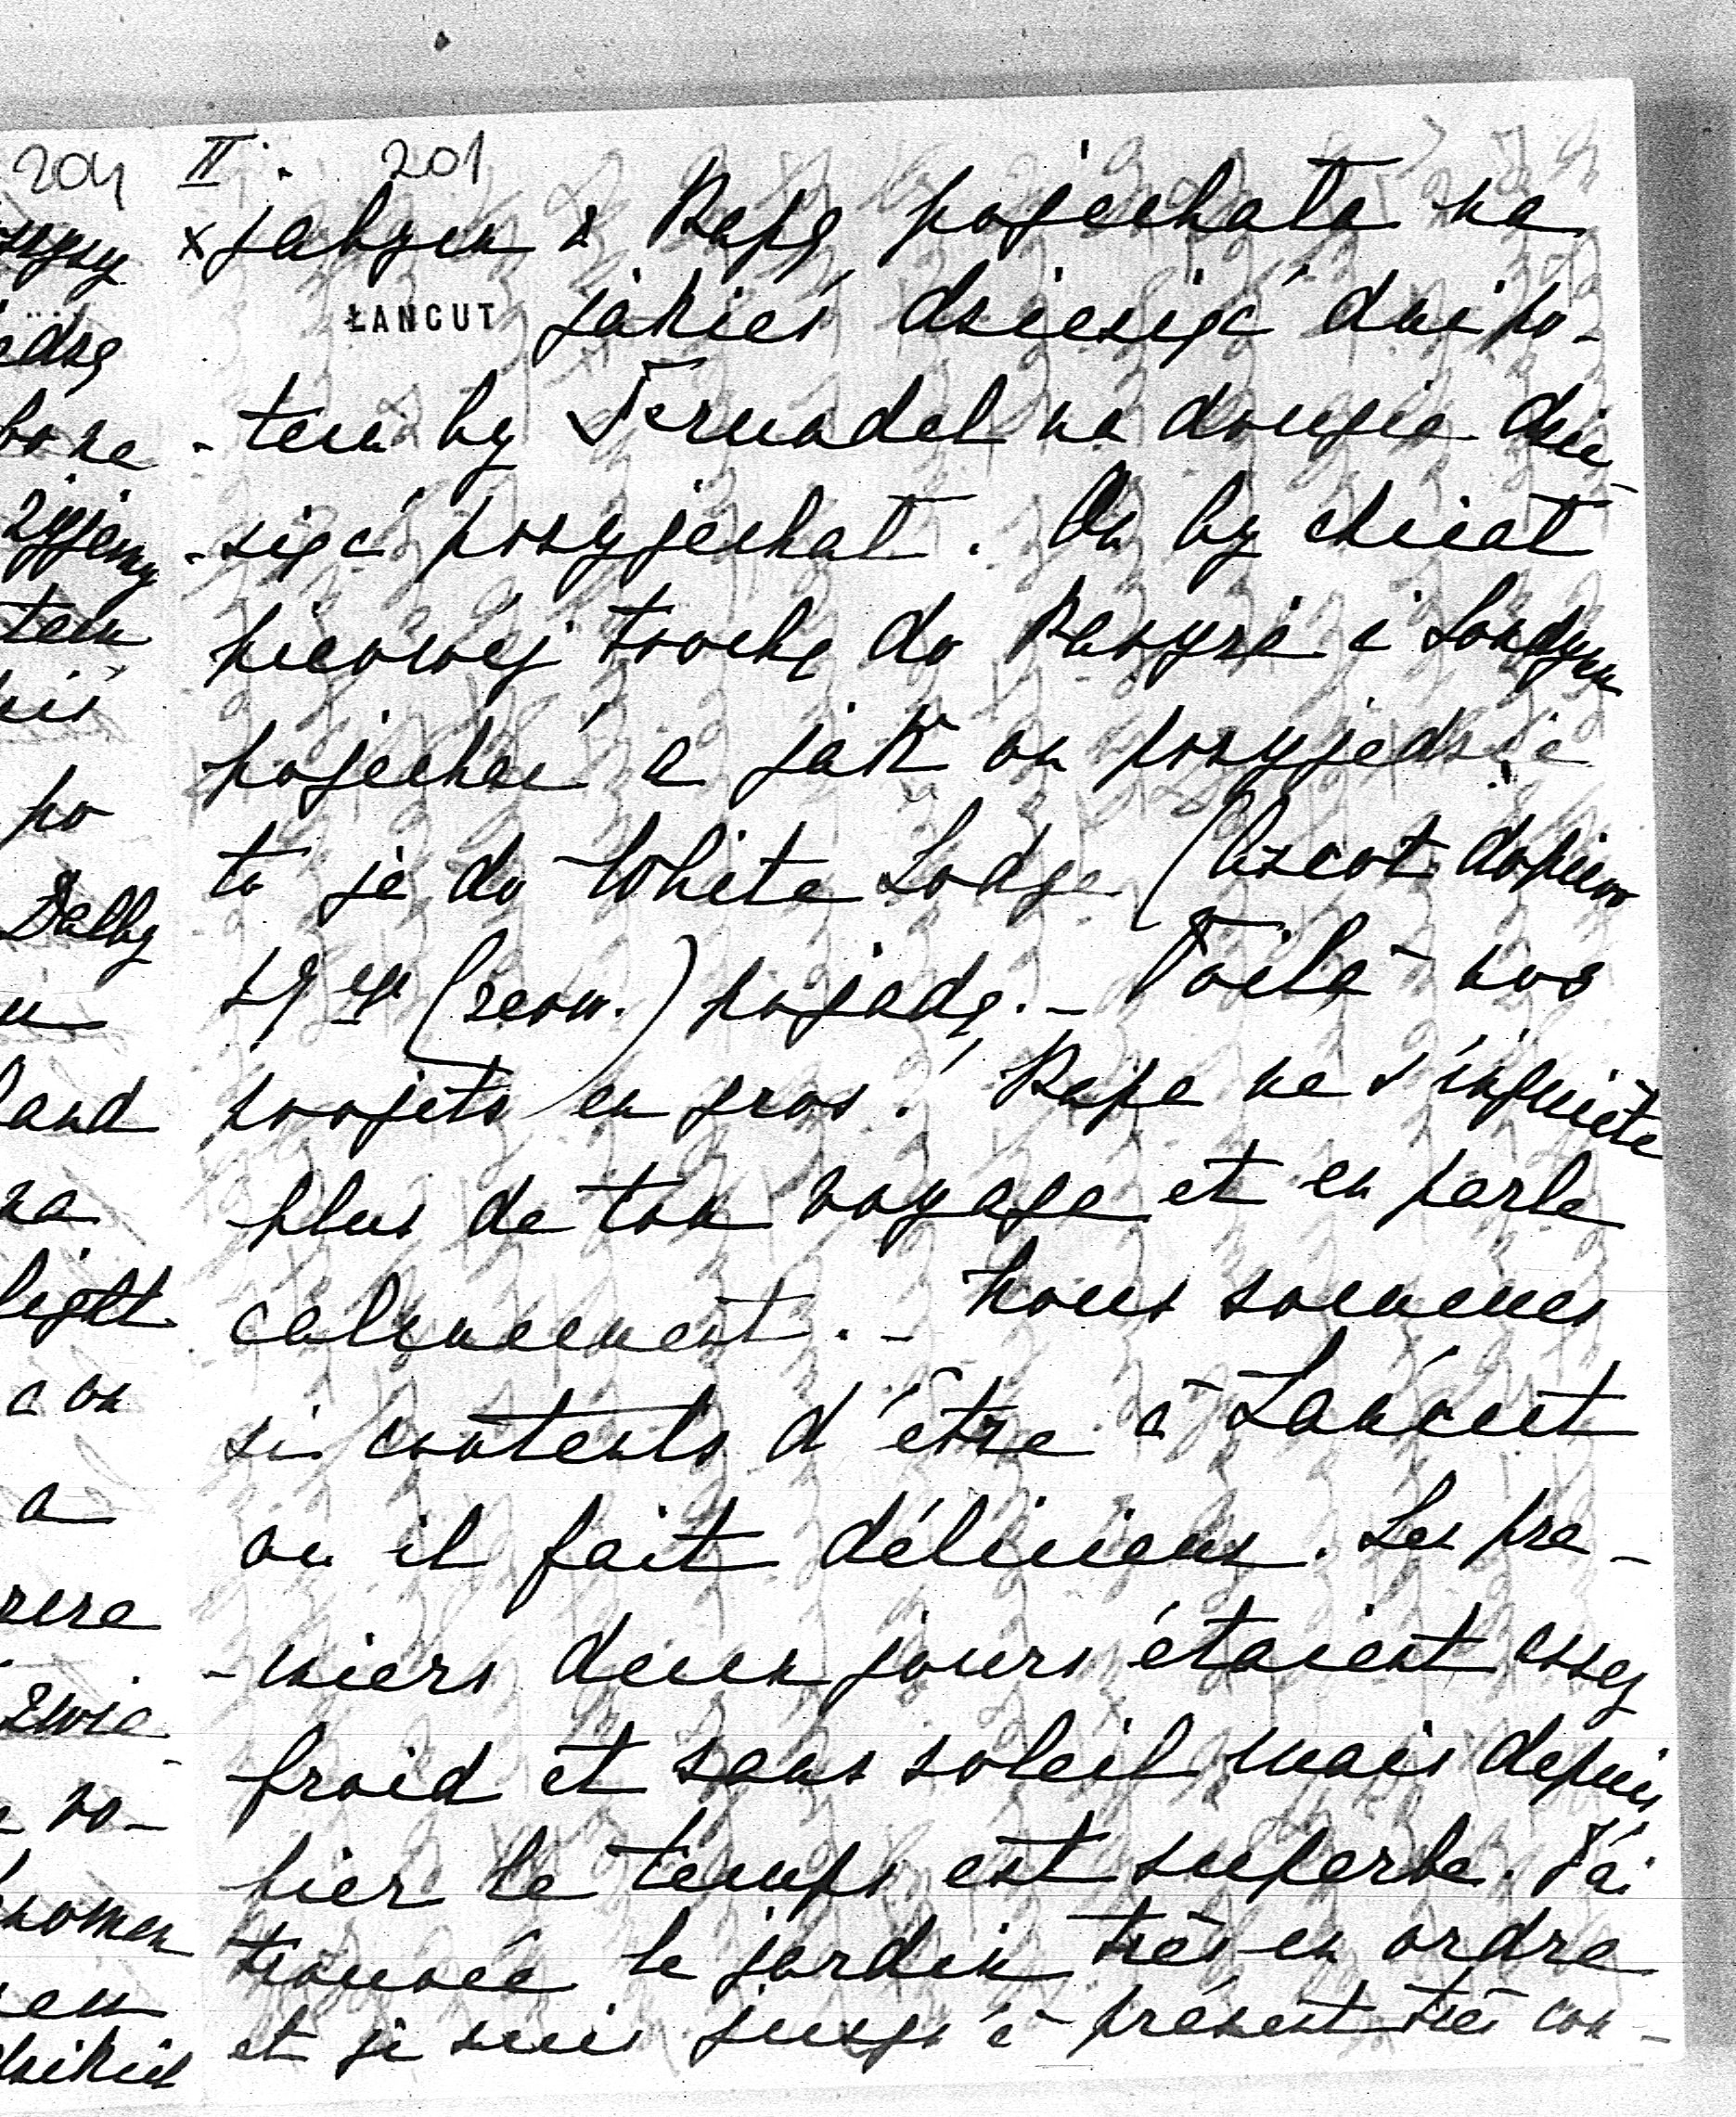 204 II. 201
x jabym z Papą pojechała na
ŁANCUT jakieś dziesięć dni po-
-tem by Fernadel na drugie dzie-
-sięć przyjechał. On by chciał
pierwej trochę do Paryża i Londynu
pojechać a jak on przyjedzie
to ja do White Lodge (Ascot dopiero
(zeow.) pojadę. - Voilà nos
projets en gros! Papa ne s'inquiète
plus de ton voyage et en parle
calmement. - Nous sommes
si contents d'être à Łańcut
ou il fait délicieux. Les pre-
-miers deux jours étaient assez
froid et sans soleil mais depuis
hier le temps est superbe. J'ai
trouvée le jardin très en ordre
et je suis jusqu'à présent très con-
żyjemy
tem
po
Dalby
and
na
light
a on
a